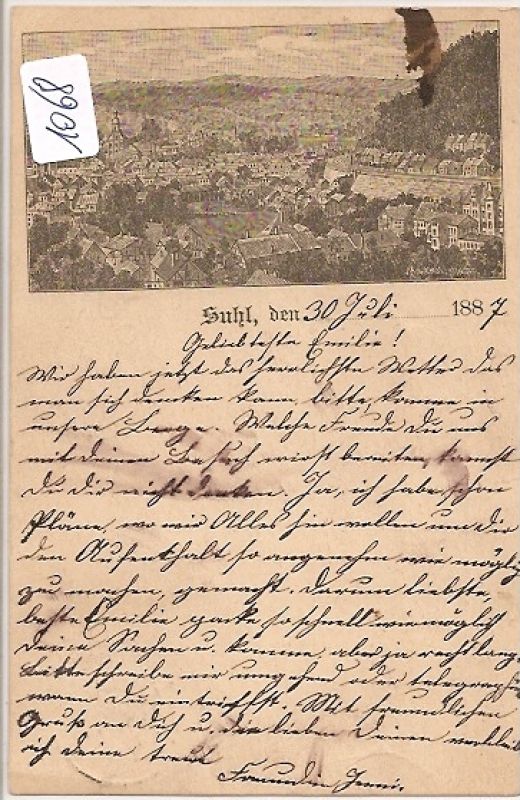 1068
Suhl, den 30 Juli 1887
Geliebteste Emilie!
Wir haben jetzt das herrlichste Wetter das
man sich denken kann, bitte, komme in
unsere Berge. Welche Freude Du uns
mit deinem Besuch wirst bereiten, kannst
Du Dir nicht denken. Ja, ich habe schon
Pläne, wo wir Alles hin wollen um dir
den Aufenthalt so angenehm wie mögli
zu machen, gemacht. Darum liebste,
beste Emilie packe so schnell wie möglich
Deine Sachen u. komme, aber ja recht lang
Bitte schreibe mir umgehend oder telegraph
wann Du eintriffst. Mit freundlichen
Gruß an Dich u. die lieben Deinen verblei
ich deine treue
Freundin Jenni.